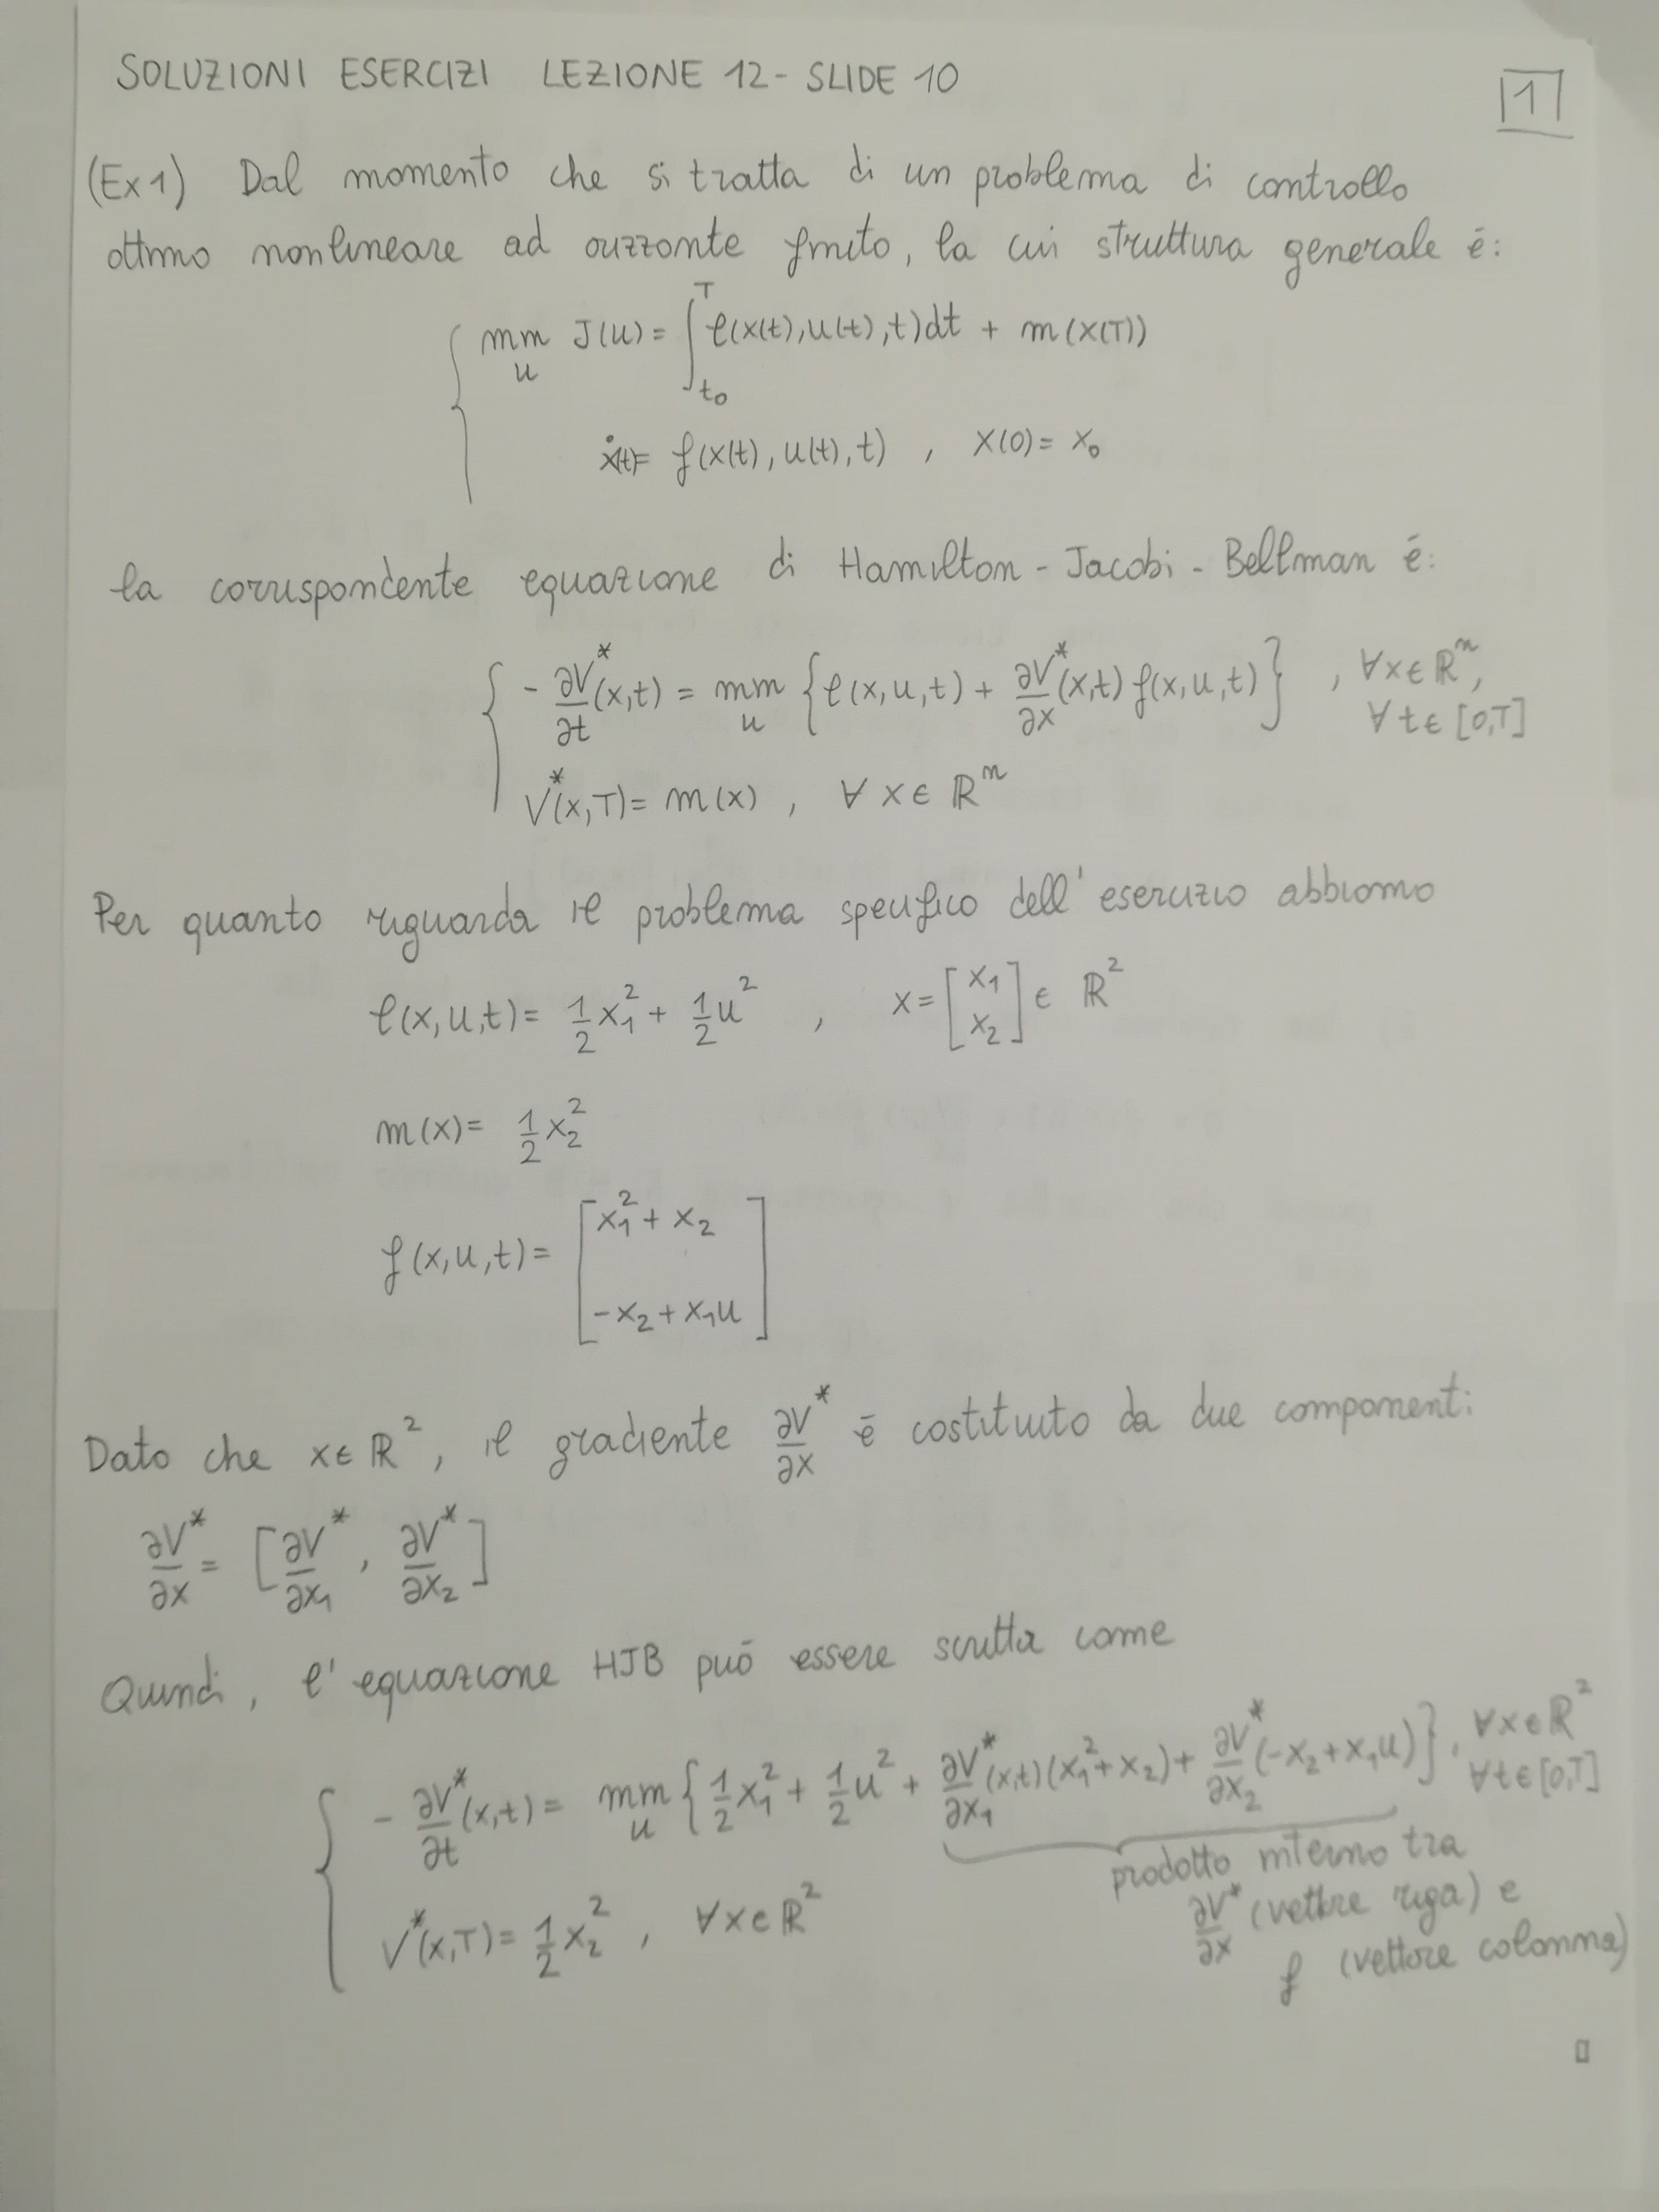 SOLUZIONI ESERCIZI LEZIONE 12 - SLIDE 10
1
(Ex1) Dal momento che si tratta di un problema di controllo
ottimo nonlineare ad orizzonte finito, la cui struttura generale è:
min_u J(u) = ∫_{t₀}^{T} ℓ(x(t),u(t),t)dt + m(x(T))
ẋ(t) = f(x(t),u(t),t) , x(0) = x₀
la corrispondente equazione di Hamilton - Jacobi - Bellman è:
- ∂V*/∂t (x,t) = min_u { ℓ(x,u,t) + ∂V*/∂x (x,t) f(x,u,t) } , ∀x∈ℝⁿ,
∀t∈[0,T]
V*(x,T) = m(x) , ∀x∈ℝⁿ
Per quanto riguarda il problema specifico dell'esercizio abbiamo
ℓ(x,u,t) = 1/2 x₁² + 1/2 u² , x = [x₁ x₂] ∈ ℝ²
m(x) = 1/2 x₂²
f(x,u,t) = [x₁² + x₂
-x₂ + x₁u]
Dato che x∈ℝ², il gradiente ∂V*/∂x è costituito da due componenti:
∂V*/∂x = [∂V*/∂x₁ , ∂V*/∂x₂]
Quindi, l'equazione HJB può essere scritta come
- ∂V*/∂t (x,t) = min_u { 1/2 x₁² + 1/2 u² + ∂V*/∂x₁ (x,t)(x₁² + x₂) + ∂V*/∂x₂ (-x₂ + x₁u) } , ∀x∈ℝ²
∀t∈[0,T]
V*(x,T) = 1/2 x₂² , ∀x∈ℝ²
prodotto interno tra
∂V*/∂x (vettore riga) e
f (vettore colonna)